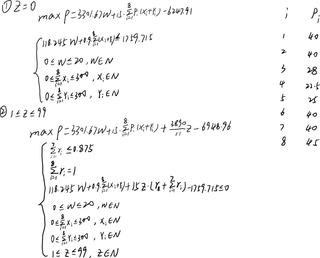 ① Z=0
max P=3301.67W+15·∑_{i=1}^{8}P_i(X_i+Y_i)-6247.91
118.245W+0.9∑_{i=1}^{8}(X_i+Y_i)≤1759.715
0≤W≤20, W∈N
0≤∑_{i=1}^{8}X_i≤300, X_i∈N
0≤∑_{i=1}^{8}Y_i≤300, Y_i∈N
② 1≤Z≤99
max P=3301.67W+15·∑_{i=1}^{8}P_i(X_i+Y_i)+\frac{3890}{11}Z-6948.96
∑_{i=1}^{7}r_i≤0.875
∑_{i=1}^{8}r_i=1
118.245W+0.9∑_{i=1}^{8}(X_i+Y_i)+15Z·(r_8+∑_{i=1}^{7}r_i)-1759.715≤0
0≤W≤20, W∈N
0≤∑_{i=1}^{8}X_i≤300, X_i∈N
0≤∑_{i=1}^{8}Y_i≤300, Y_i∈N
1≤Z≤99, Z∈N
i P_i
1 40
2 40
3 28
4 22.5
5 25
6 40
7 40
8 45